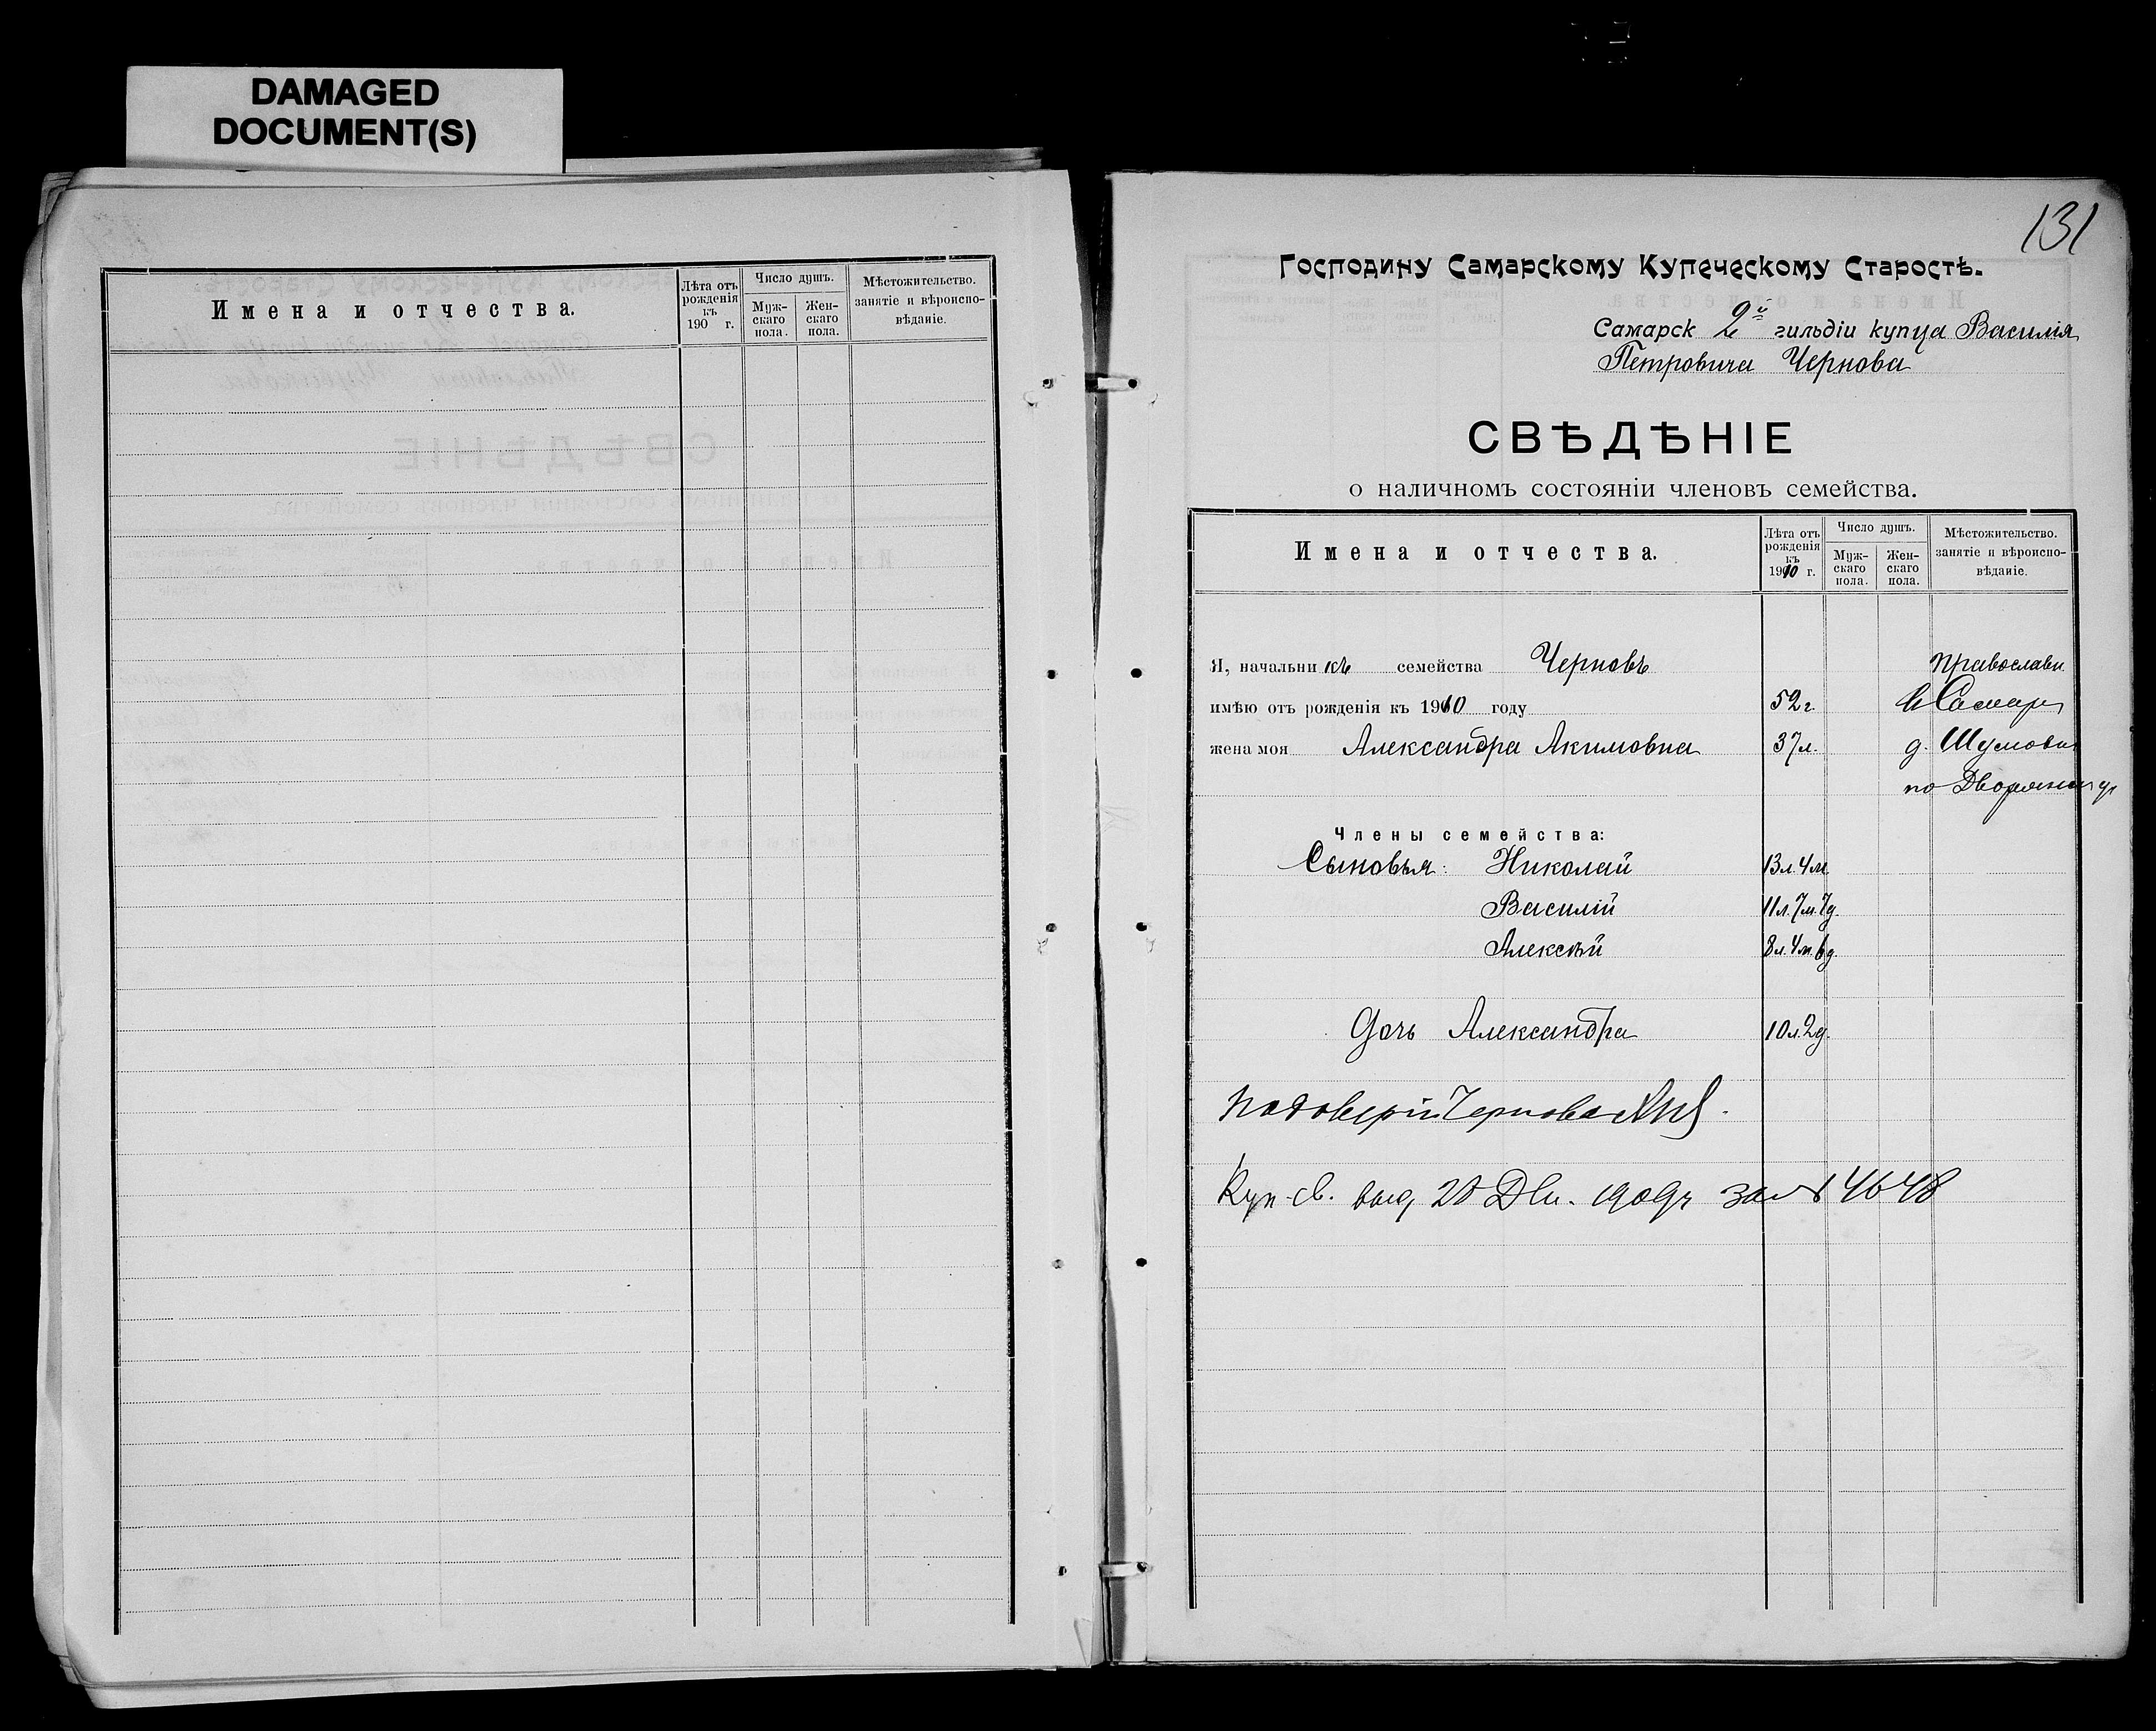 DAMAGED
DOCUMENT(S)
Имена и отчества.
Лѣта отъ рожденія къ 190 г.
Число душъ.
Муж-скаго пола.
Жен-скаго пола.
Мѣстожительство. занятіе и вѣроиспо-вѣданіе.
131
Господину Самарскому Купеческому Старостѣ.
Самарск 2й гильдіи купца Василія
Петровича Чернова
СВѢДѢНІЕ
о наличномъ состояніи членовъ семейства.
Имена и отчества.
Лѣта отъ рожденія къ 1910 г.
Число душъ.
Муж-скаго пола.
Жен-скаго пола.
Мѣстожительство. занятіе и вѣроиспо-вѣданіе.
Я, начальникъ семейства Черновъ православн
имѣю отъ рожденія къ 1910 году 52 г. в Самар
жена моя Александра Акимовна 37 л. д. Шумова
по Дворянск ул
Члены семейства:
Сыновья: Николай 13 л. 4 м.
Василій 11 л. 7 м. 7 д.
Алексѣй 8 л. 4 м. 6 д.
Дочь Александра 10 л. 2 д.
По доверію Чернова
Куп. св. выд. 20 Дек. 1909 г за № 4648